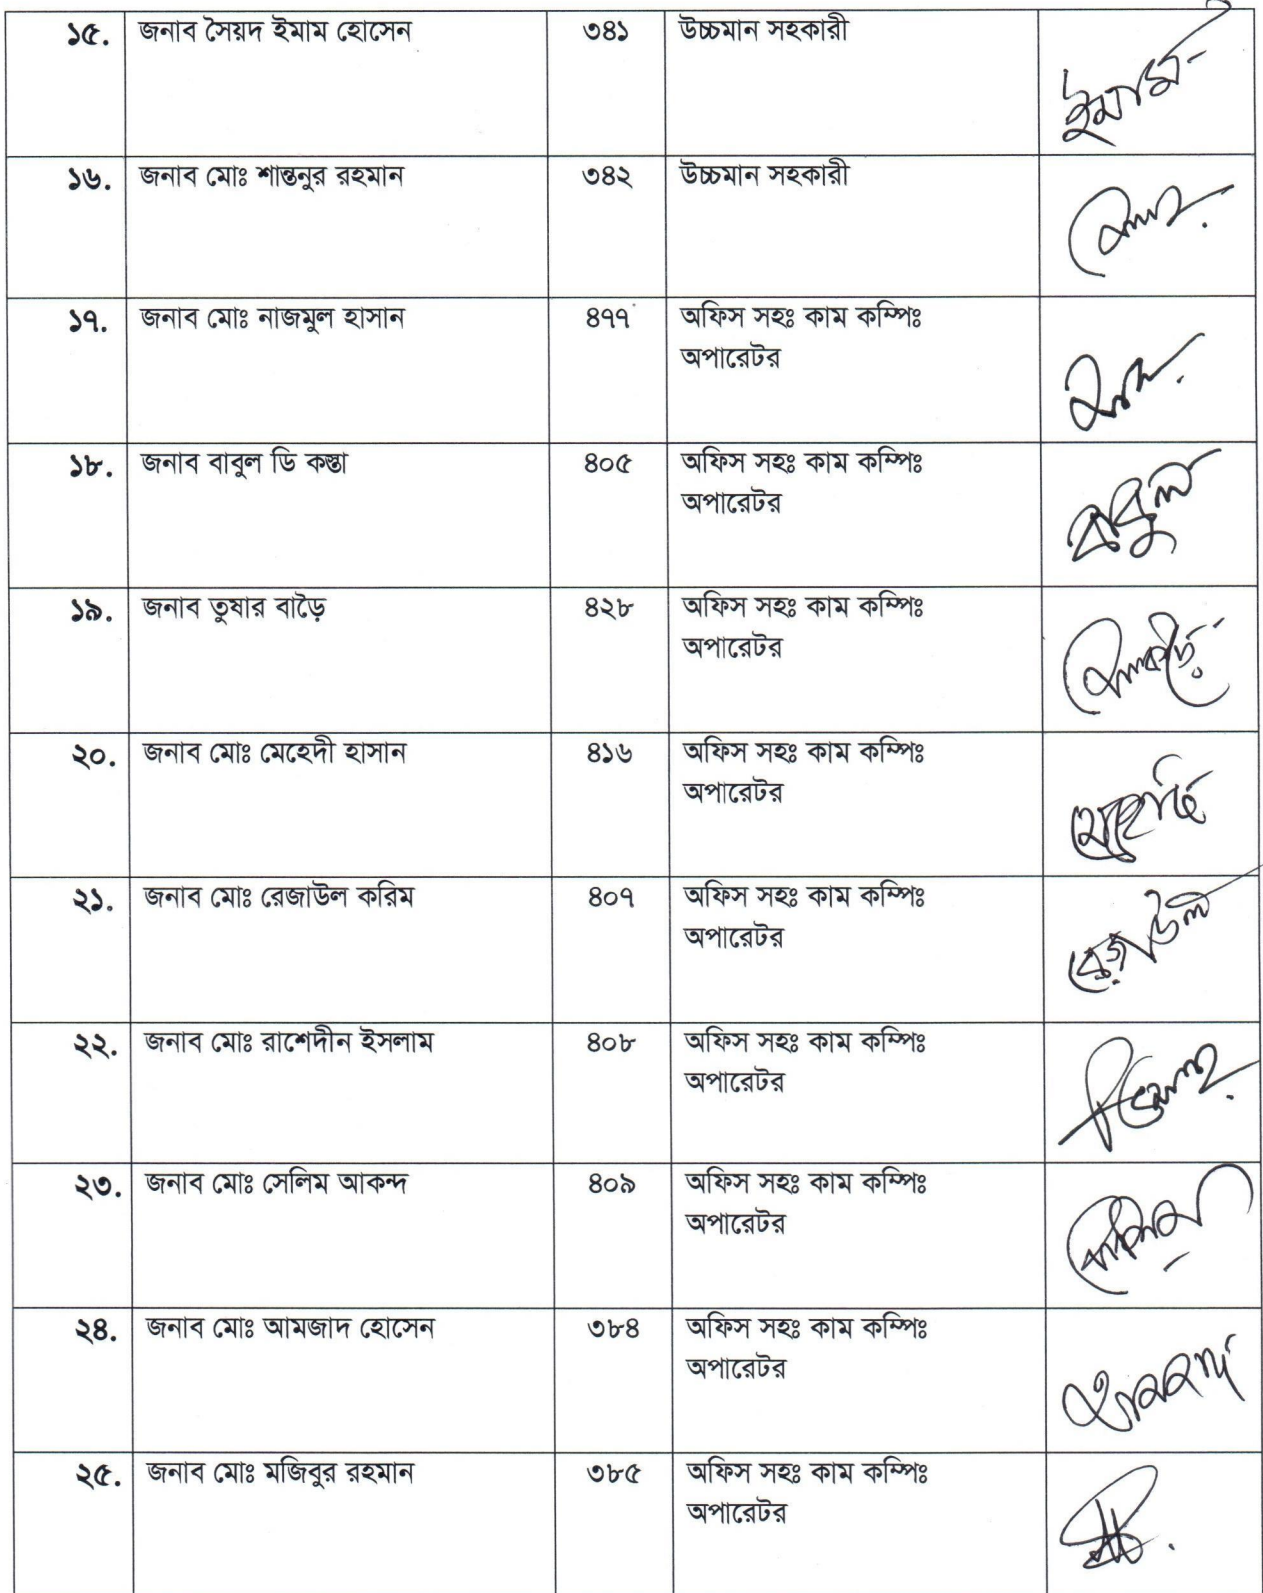 ১৫. জনাব সৈয়দ ইমাম হোসেন ৩৪১ উচ্চমান সহকারী
ইমাম
১৬. জনাব মোঃ শান্তনুর রহমান ৩৪২ উচ্চমান সহকারী
১৭. জনাব মোঃ নাজমুল হাসান ৪৭৭ অফিস সহঃ কাম কম্পিঃ
অপারেটর
১৮. জনাব বাবুল ডি কস্তা ৪০৫ অফিস সহঃ কাম কম্পিঃ
অপারেটর
বাবুল
১৯. জনাব তুষার বাড়ৈ ৪২৮ অফিস সহঃ কাম কম্পিঃ
অপারেটর
২০. জনাব মোঃ মেহেদী হাসান ৪১৬ অফিস সহঃ কাম কম্পিঃ
অপারেটর
২১. জনাব মোঃ রেজাউল করিম ৪০৭ অফিস সহঃ কাম কম্পিঃ
অপারেটর
রেজাউল
২২. জনাব মোঃ রাশেদীন ইসলাম ৪০৮ অফিস সহঃ কাম কম্পিঃ
অপারেটর
২৩. জনাব মোঃ সেলিম আকন্দ ৪০৯ অফিস সহঃ কাম কম্পিঃ
অপারেটর
২৪. জনাব মোঃ আমজাদ হোসেন ৩৮৪ অফিস সহঃ কাম কম্পিঃ
অপারেটর
২৫. জনাব মোঃ মজিবুর রহমান ৩৮৫ অফিস সহঃ কাম কম্পিঃ
অপারেটর